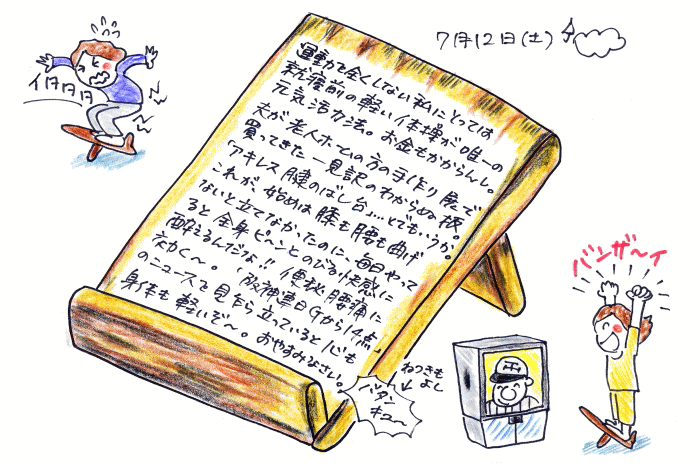 7月12日(土)
イタタタタ
運動を全くしない私にとっては
就寝前の軽い体操が唯一の
元気活力法。お金もかからんし。
夫が老人ホームの方の手作り展で
買ってきた一見訳のわからぬ板。
「アキレス腱のばし台」…とでもいうか。
これが、始めは膝も腰も曲げ
ないと立てなかったのに、毎日やって
ると全身ピーンとのびる快感に
酔えるんだなぁ!! 便秘、腰痛に
効く〜。「阪神連日Gから14点」
のニュースを見ながら立っていると心も
身体も軽いぞ〜。おやすみなさい。
ねつきも
よし
バタン
キュー
バンザ〜イ